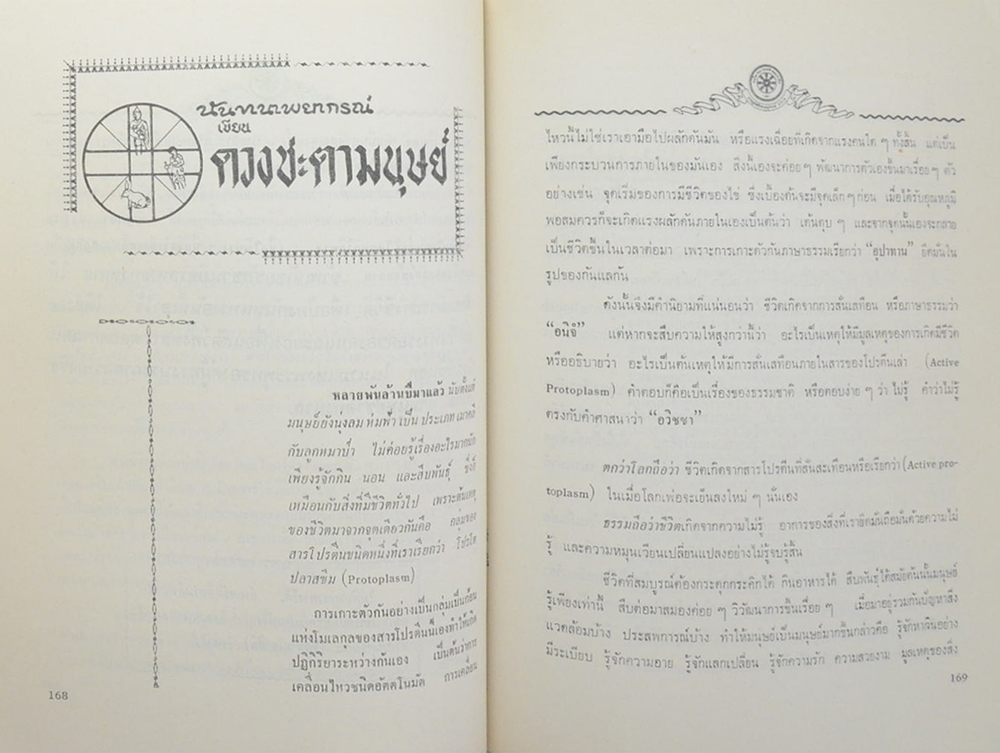 นันทนาพยากรณ์
เขียน
ดวงชะตามนุษย์
หลายพันล้านปีมาแล้ว นับตั้งแต่
มนุษย์ยังนุ่งลม ห่มฟ้า เป็น ประเภท เมาคลี
กับลูกหมาป่า ไม่ค่อยรู้เรื่องอะไรมากนัก
เพียงรู้จักกิน นอน และสืบพันธุ์ ซึ่งก็
เหมือนกับสิ่งที่มีชีวิตทั่วไป เพราะต้นเหตุ
ของชีวิตมาจากจุดเดียวกันคือ กลุ่มของ
สารโปรตีนชนิดหนึ่งที่เราเรียกว่า โปรโต
ปลาสซึม (Protoplasm)
การเกาะตัวกันอย่างเป็นกลุ่มเป็นก้อน
แห่งโมเลกุลของสารโปรตีนนี้เองทำให้เกิด
ปฏิกิริยาระหว่างกันเอง เป็นต้นว่าการ
เคลื่อนไหวชนิดอัตตโนมัต การเคลื่อน
168
ไหวนี้ไม่ใช่เราเอามือไปผลักดันมัน หรือแรงเฉื่อยที่เกิดจากแรงคนใด ๆ ทั้งสิ้น แต่เป็น
เพียงกระบวนการภายในของมันเอง สิ่งนี้เองจะค่อยๆ พัฒนาการตัวเองขึ้นมาเรื่อยๆ ตัว
อย่างเช่น จุดเริ่มของการมีชีวิตของไข่ ซึ่งเบื้องต้นจะมีจุดเล็กๆก่อน เมื่อได้รับอุณหภูมิ
พอสมควรก็จะเกิดแรงผลักดันภายในเองเป็นต้นว่า เต้นตุบๆ และจากจุดนั้นเองจะกลาย
เป็นชีวิตขึ้นในเวลาต่อมา เพราะการเกาะตัวกันภาษาธรรมเรียกว่า “อุปาทาน” ยึดมั่นใน
รูปของกันแลกัน
ดังนั้นจึงมีคำนิยามที่แน่นอนว่า ชีวิตเกิดจากการสั่นเทือน หรือภาษาธรรมว่า
“อนิจ” แต่หากจะสืบความให้สูงกว่านี้ว่า อะไรเป็นเหตุให้มีมูลเหตุของการเกิดมีชีวิต
หรืออธิบายว่า อะไรเป็นต้นเหตุให้มีการสั่นเทือนภายในสารของโปรตีนเล่า (Active
Protoplasm) คำตอบก็คือเป็นเรื่องของธรรมชาติ หรือตอบง่าย ๆ ว่า ไม่รู้ คำว่าไม่รู้
ตรงกับคำศาสนาว่า “อวิชชา”
ตกว่าโลกถือว่า ชีวิตเกิดจากสารโปรตีนที่สั่นสะเทือนหรือเรียกว่า (Active pro-
toplasm) ในเมื่อโลกเพ่อจะเย็นลงใหม่ ๆ นั่นเอง
ธรรมถือว่าชีวิตเกิดจากความไม่รู้ อาการของสิ่งที่เรายึดมั่นถือมั่นด้วยความไม่
รู้ และความหมุนเวียนเปลี่ยนแปลงอย่างไม่รู้จบรู้สิ้น
ชีวิตที่สมบูรณ์ต้องกระดุกกระดิกได้ กินอาหารได้ สืบพันธุ์ได้สมัยต้นนั้นมนุษย์
รู้เพียงเท่านี้ สืบต่อมาสมองค่อยๆ วิวัฒนาการขึ้นเรื่อยๆ เมื่อมาอยู่รวมกันบัญหาสิ่ง
แวดล้อมบ้าง ประสพการณ์บ้าง ทำให้มนุษย์เป็นมนุษย์มากขึ้นกล่าวคือ รู้จักหากินอย่าง
มีระเบียบ รู้จักความอาย รู้จักแลกเปลี่ยน รู้จักความรัก ความสวยงาม มูลเหตุของสิ่ง
169